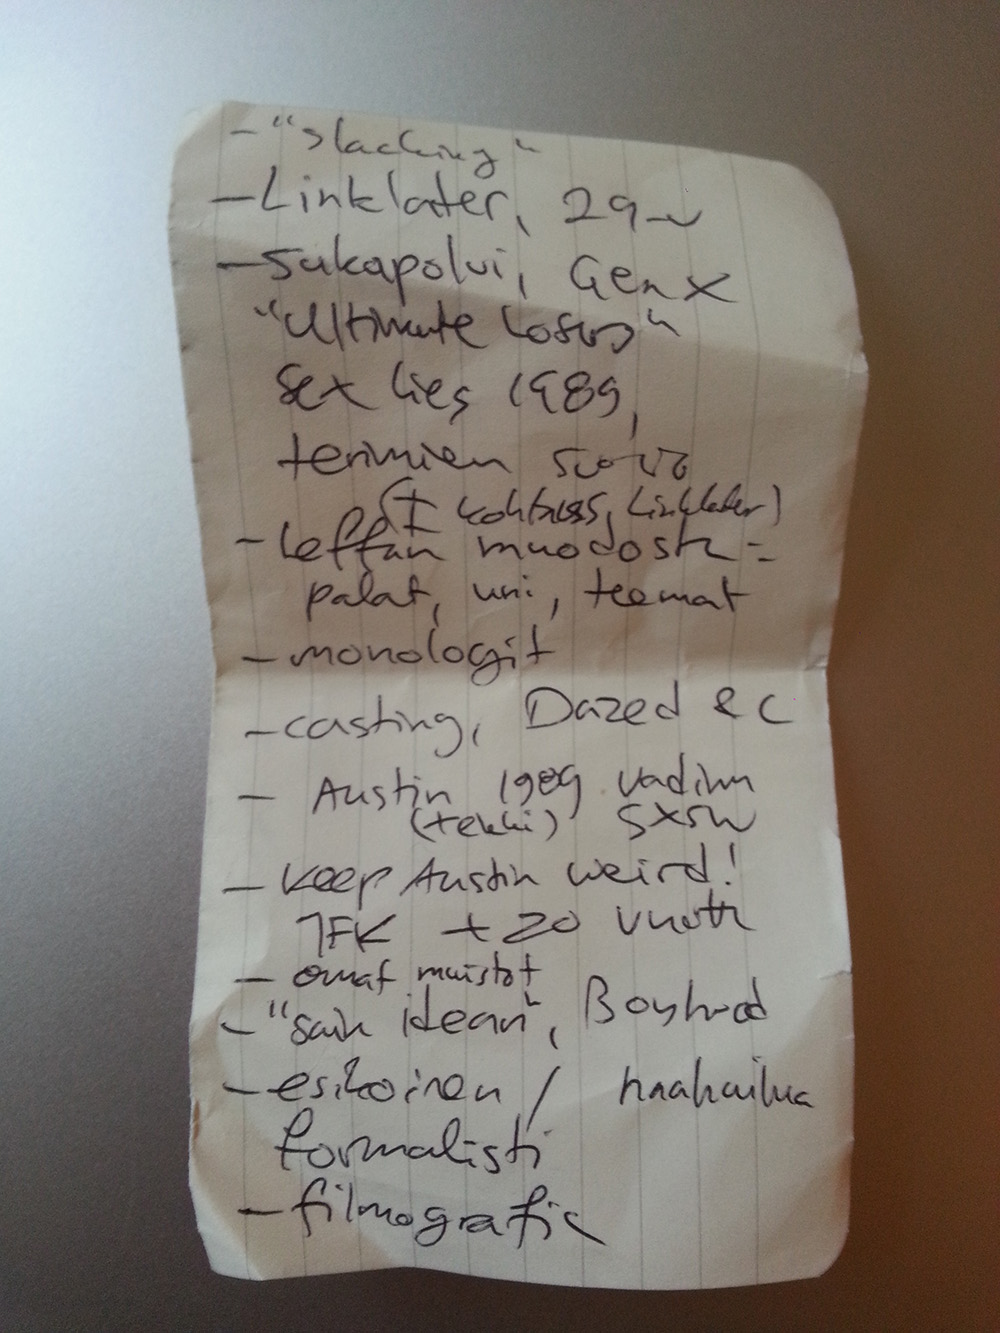 - "slacking"
- Linklater, 29-v
- sukapolvi, Gen X
"Ultimate Losers"
Sex Lies 1989,
termien suora
(I kohtaus, Linklater)
- Leffan muodosta =
palat, uni, teemat
- monologit
- casting, Dazed & C
- Austin 1989 vadim
(tekki) SXSW
- Keep Austin weird!
JFK + 20 vuotta
- omat muistot
- "sain idean", Boyhood
- esikoinen /
formalisti
- filmografia